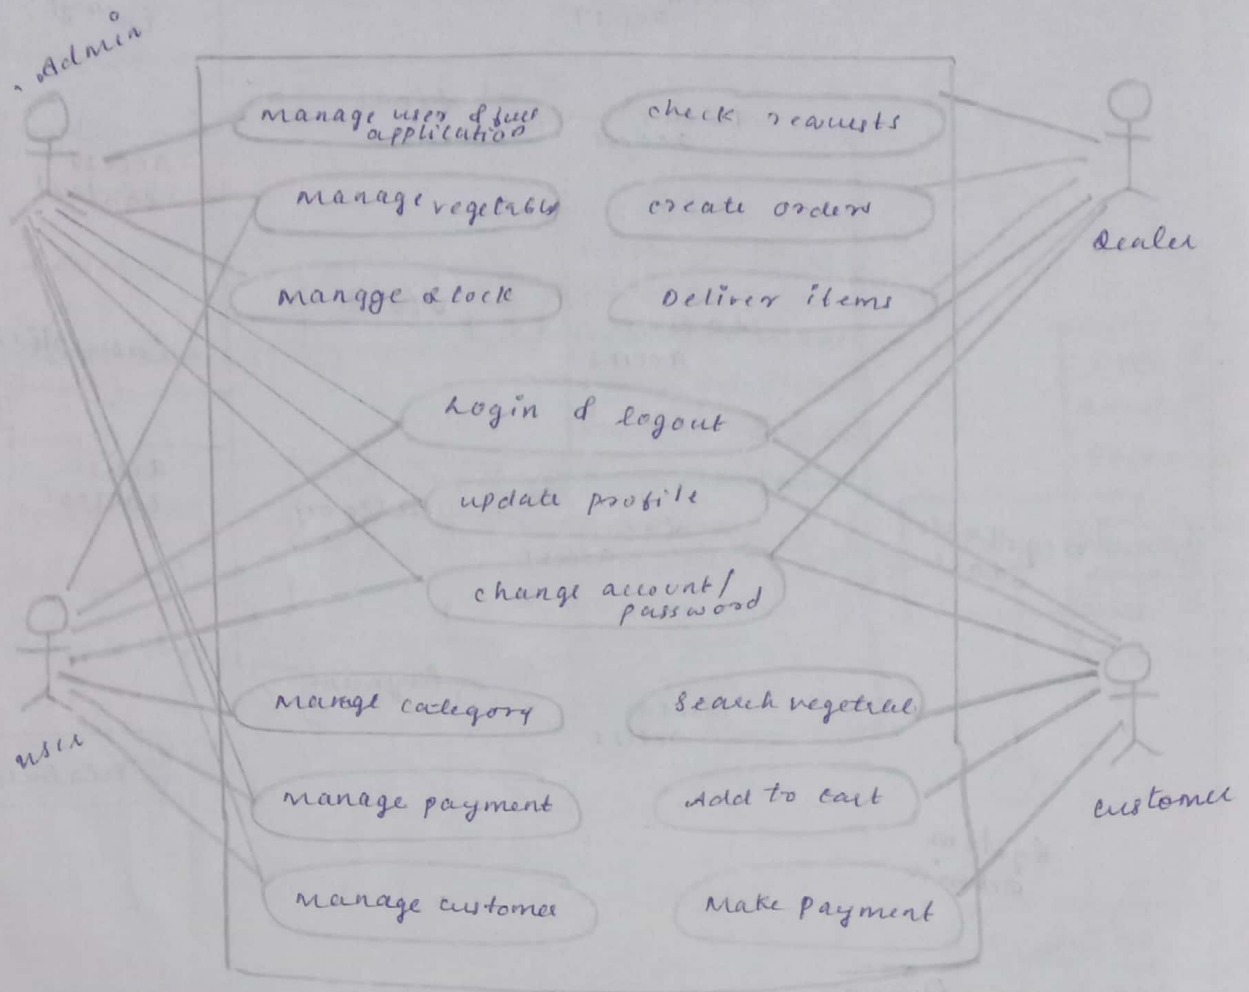 Admin
manage user & full
application
check requests
manage vegetable
create orders
Dealer
manage stock
Deliver items
Login & logout
update profile
change account/
password
user
manage category
Search vegetable
manage payment
Add to cart
customer
manage customer
Make payment